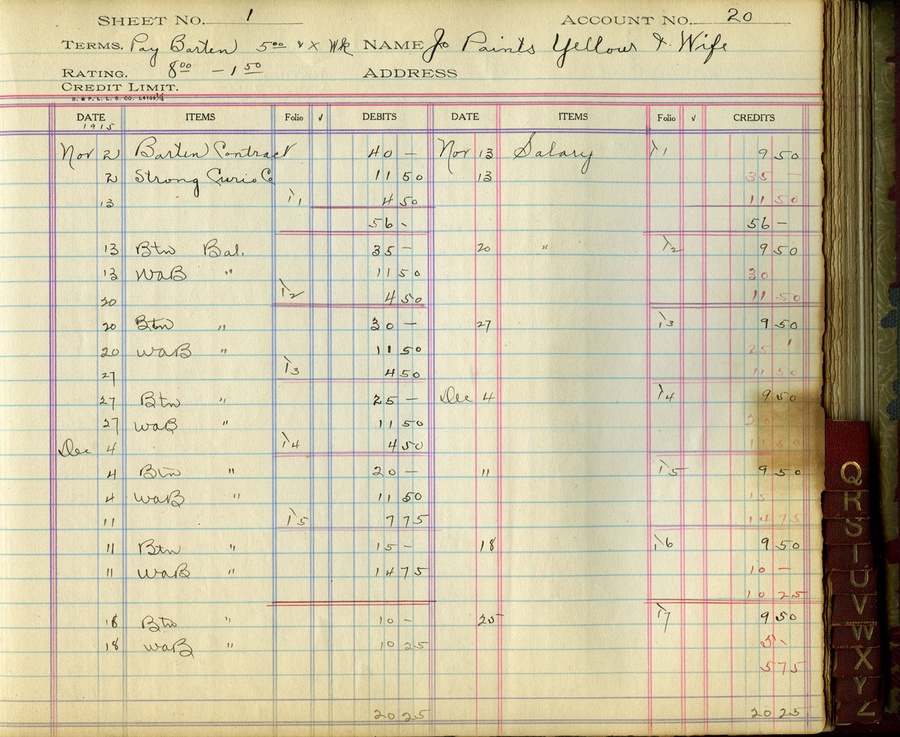 SHEET NO. 1 ACCOUNT NO. 20
TERMS. Pay Barten 5 00 & X Wk NAME Jo Paints Yellow & Wife
RATING. 8 00 - 1 50 ADDRESS
CREDIT LIMIT.
DATE ITEMS Folio √ DEBITS DATE ITEMS Folio √ CREDITS
1915
Nov 2 Barten Contract 40 - Nov 13 Salary 1 9 50
2 Strong Curio Co 11 50 13 35 -
13 1 4 50 11 50
56 - 56 -
13 Btn Bal. 35 - 20 " 2 9 50
13 WaB " 11 50 30
20 2 4 50 11 50
20 Btn " 30 - 27 3 9 50
20 WaB " 11 50 25
27 3 4 50 11 50
27 Btn " 25 - Dec 4 4 9 50
27 WaB " 11 50
Dec 4 4 4 50
4 Btn " 20 - 11 5 9 50
4 WaB " 11 50 15
11 5 7 75 14 75
11 Btn " 15 - 18 6 9 50
11 WaB " 14 75 10 -
10 25
18 Btn " 10 - 25 7 9 50
18 WaB " 10 25 5 -
5 75
20 25 20 25
Q
R
S
T
U
V
W
X
Y
Z